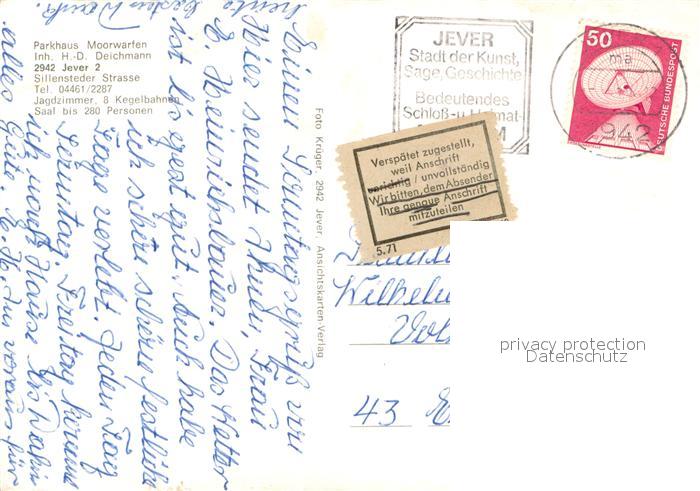 Parkhaus Moorwarfen
Inh. H.-D. Deichmann
2942 Jever 2
Sillensteder Strasse
Tel. 04461/2287
Jagdzimmer, 8 Kegelbahnen
Saal bis 280 Personen
Einen Sonntagsgruß von
hier sendet Ihnen, Frau
Das Wetter
ist bis jetzt gut. Auch habe
ich schöne schöne festliche
Tage verlebt. Jeden Tag
Sonntag. Freitag komme
ich nach Hause. Bis dahin
alles Gute. im voraus für
besten Dank.
Foto Krüger, 2942 Jever, Ansichtskarten-Verlag
JEVER
Stadt der Kunst,
Sage, Geschichte
Bedeutendes
Schloß- u. Heimat-
50
DEUTSCHE BUNDESPOST
2942
Verspätet zugestellt,
weil Anschrift
unrichtig / unvollständig
Wir bitten, dem Absender
Ihre genaue Anschrift
mitzuteilen
5.71
Wilhelm
43 E
privacy protection
Datenschutz